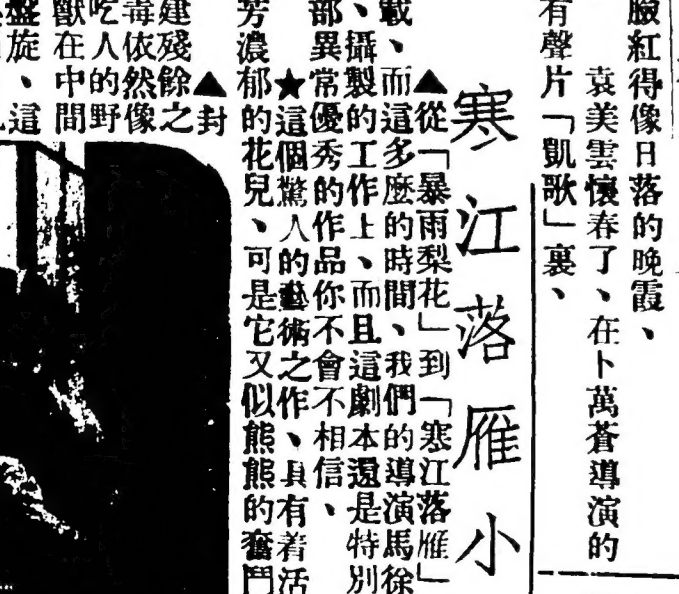 臉紅得像日落的晚霞、
袁美雲懷春了、在卜萬蒼導演的
有聲片「凱歌」裏、
寒江落雁小
▲從「暴雨梨花」到「寒江落雁」
載、而這多麼的時間、我們的導演馬徐
、攝製的工作上、而且這劇本還是特別
部異常優秀的作品你不會不相信、
★這個驚人的藝術之作、具有着活
芳濃郁的花兒、可是它又似熊熊的奮鬥
▲封
建殘餘之
毒依然像
吃人的野
獸在中間
盤旋、這